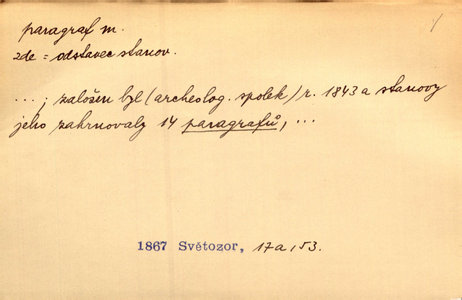 paragraf m.
zde = odstavec stanov.
...; založen byl (archeolog. spolek) r. 1843 a stanovy
jeho zahrnovaly 14 paragrafů, ...
1867 Světozor, 17a, 53.